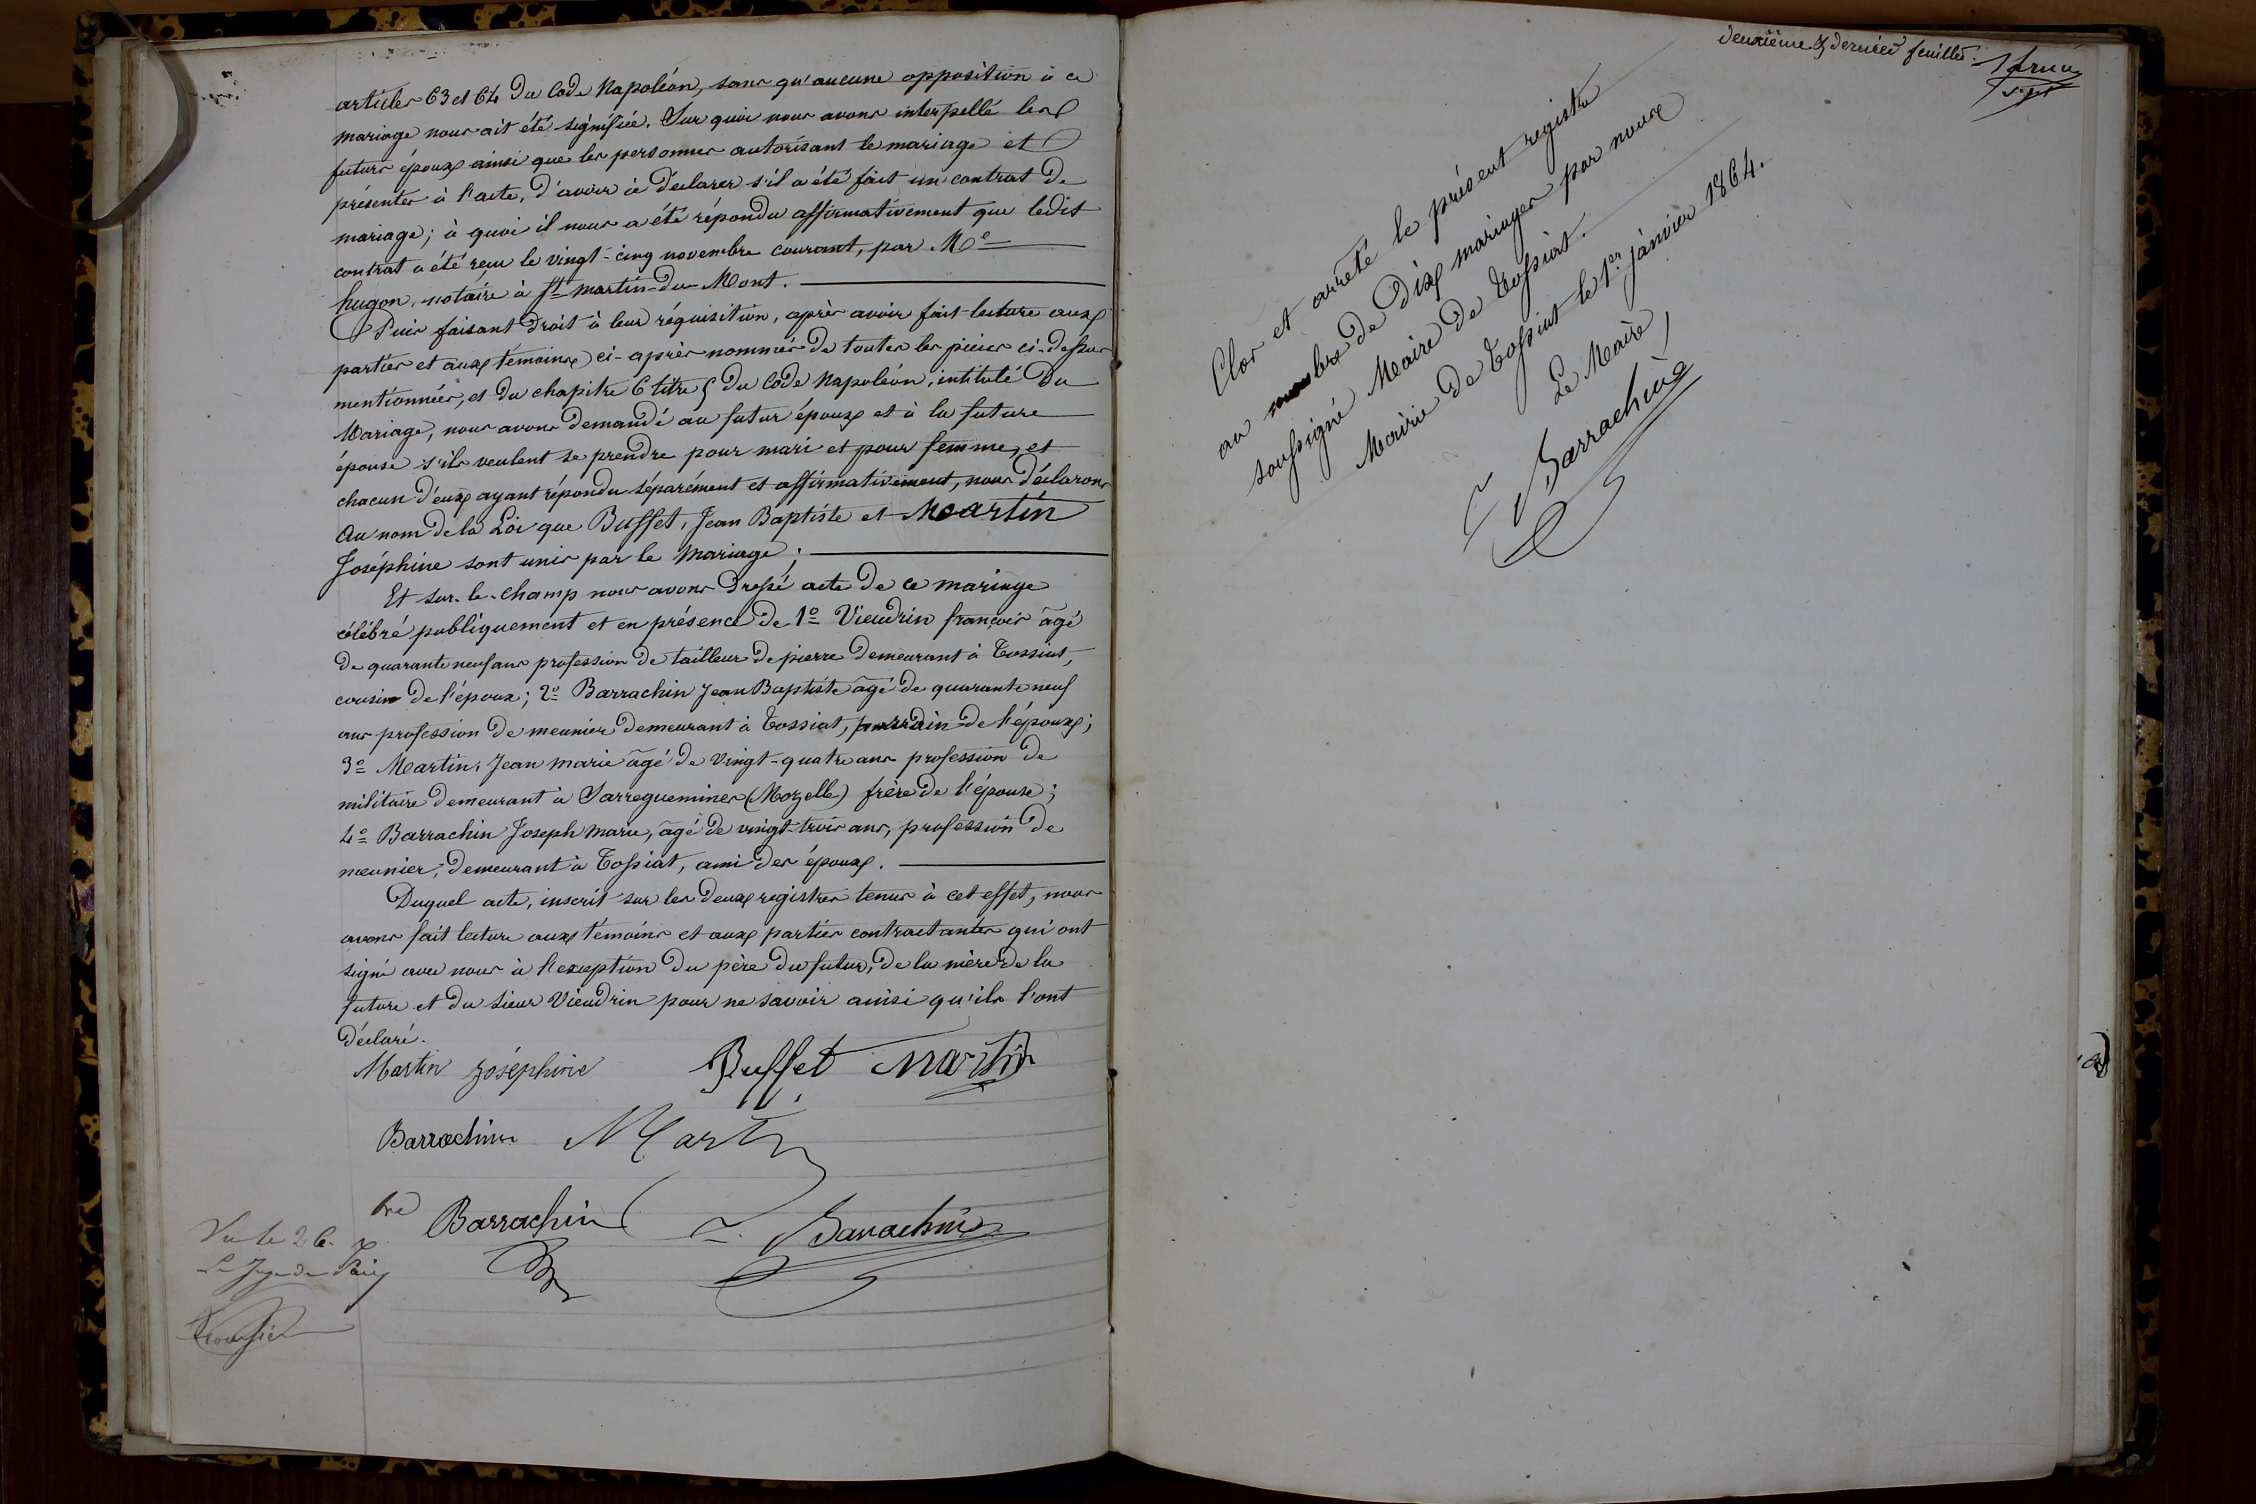 articles 63 et 64 du Code Napoléon, sans qu'aucune opposition à ce
mariage nous ait été signifiée. Sur quoi nous avons interpellé les
futurs époux ainsi que les personnes autorisant le mariage et
présentes à l'acte, d'avoir à déclarer s'il a été fait un contrat de
mariage; à quoi il nous a été répondu affirmativement que ledit
contrat a été reçu le vingt-cinq novembre courant, par Me
hugon, notaire à St martin-du-Mont.
Puis faisant droit à leur réquisition, après avoir fait lecture aux
parties et aux témoins ci-après nommés de toutes les pièces ci-dessus
mentionnées, et du chapitre 6 titre 5 du Code Napoléon, intitulé Du
Mariage, nous avons demandé au futur époux et à la future
épouse s'ils veulent se prendre pour mari et pour femme, et
chacun d'eux ayant répondu séparément et affirmativement, nous déclarons
au nom de la Loi que Buffet, Jean Baptiste et Martin
Joséphine sont unis par le mariage;
Et sur-le-champ nous avons dressé acte de ce mariage
célébré publiquement et en présence de 1º Vieudrin françois âgé
de quarante neuf ans profession de tailleur de pierre demeurant à Tossiat,
cousin de l'époux; 2º Barrachin Jean Baptiste âgé de quarante neuf
ans profession de meunier demeurant à Tossiat, parrain de l'époux;
3º Martin, Jean marie âgé de vingt-quatre ans profession de
militaire demeurant à Sarreguemines (Mozelle) frère de l'épouse;
4º Barrachin Joseph marie, âgé de vingt-trois ans, profession de
meunier, demeurant à Tossiat, ami des époux.
Duquel acte, inscrit sur les deux registres tenus à cet effet, nous
avons fait lecture aux témoins et aux parties contractantes qui ont
signé avec nous à l'exception du père du futur, de la mère de la
future et du sieur Vieudrin pour ne savoir ainsi qu'ils l'ont
déclaré.
Martin Joséphine Buffet Martin
Barrachin Martin
Barrachin Barrachin
Vu le 26.
Le Juge de Paix
deuxième & dernier feuillet.
Clos et arrêté le présent registre
au nombre de Dix mariages par nous
soussigné Maire de Tossiat.
Mairie de Tossiat le 1er janvier 1864.
Le Maire,
Barrachin